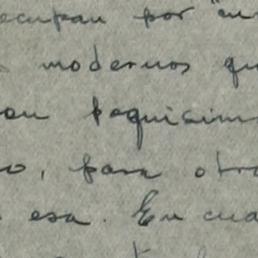 ecupan por "en
modernos qu
on poquísim
o, para otro
esa. En cua